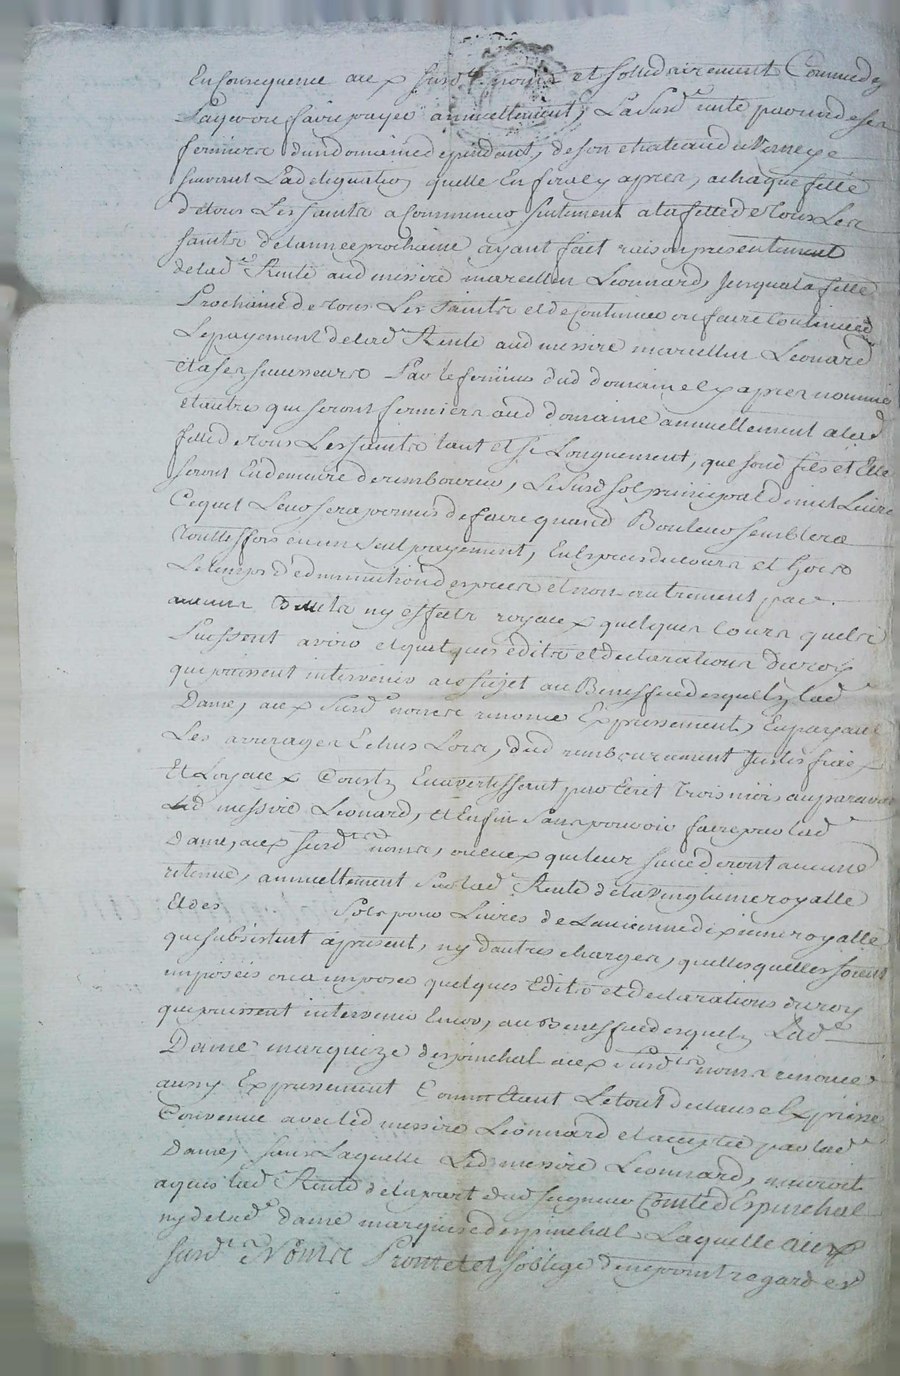 En Consequence aux susd. noms et sollidairement Comme dez
Payer ou faire payer annuellement, La Susd. rente par un de ses
fermiers d'un domaine dependant, de son chateau de
suivant La delegation, quelle En fera cy apres, a chaque fette
de tous Les saints a Commencer seulement a la fette de tous Les
saints de l'annee prochaine ayant fait raison presentement
de lad.e Rente aud messire marcellin Léonnard, Jusqua la fette
Prochaine de tous Les saints et de Continuer ou faire Continuer
Le payement de lad. Rente aud messire marcellin Léonard
et a ses sucesseurs Par le fermier dud domaine cy apres nommé
et autres qui seront fermiers aud domaine annuellement a lad
feste de tous Les saints tant et si Longuement, que son d fils et Elle
seront En demeure de rembourcer, Le Susd sol principal de mil Livres
Ce quel Leur sera permis de faire quand Bon leur semblera
touttesfois en un seul payement, En Espèces du cours et hors
Le temps d'ed diminution d'espèces et non autrement par
aucuns Billets ny effets royaux quelques cours quels
Puissent avoir et quelques édits et declarations du roy
qui puissent intervenir a ce sujet au Beneffice desquels, lad
Dame, aux susd. noms renonce Expressement, En payant
Les arrerages Echus Lors, dud rembourcement Justes frais
Et Loyaux Cousts, En avertissant par Ecrit trois mois auparavant
Led messire Léonard, et Enfin sans pouvoir faire par lad
Dame, aux susd. noms, ou ceux qui leur succederont aucune
retenue, annuellement sur lad Rente de la vingtieme royalle
Et des sols pour Livres de L'ancienne dixieme royalle
qui subsistent à present, ny d'autres charges, quelles quelles soient
imposées ou a imposer quelques Edits et declarations du roy
qui puissent intervenir Encor, au Beneffice desquels Lad.e
Dame marquize despinchal aux susd. noms renonce
aussy Expressement Comme Etant Le tout de clause Expresse
Convenue avec led messire Léonnard et acceptée par lad
Dame, sans Laquelle Led messire Léonnard, n'auroit
aquis lad Rente de la part dud seigneur Comte d'Espinchal
ny de lad.e dame marquise despinchal Laquelle aux
susd. Noms Promet et s'oblige de ne point regarder